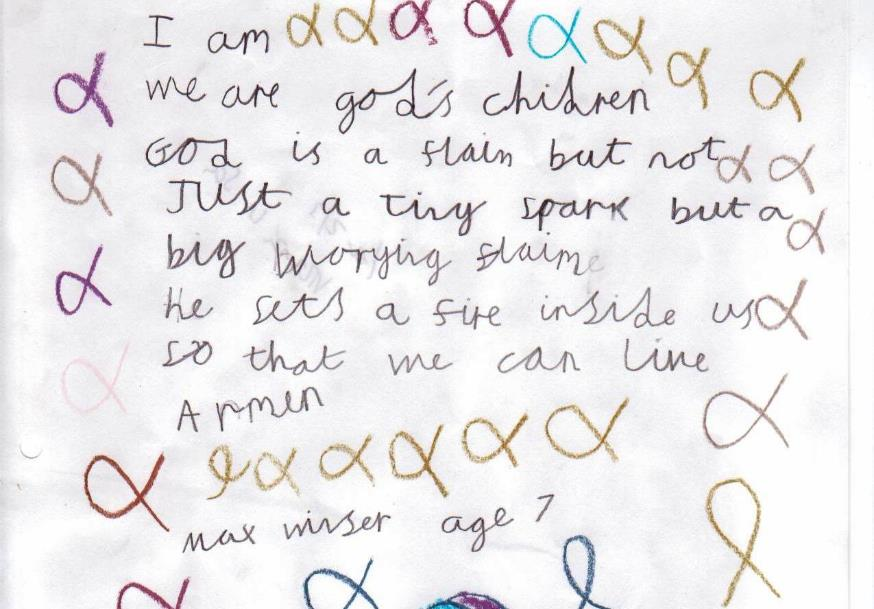 I am
we are god's children
GOD is a flain but not
JUST a tiny spark but a
big worying flaime
He sets a fire inside us
so that we can live
Armen
max winser age 7